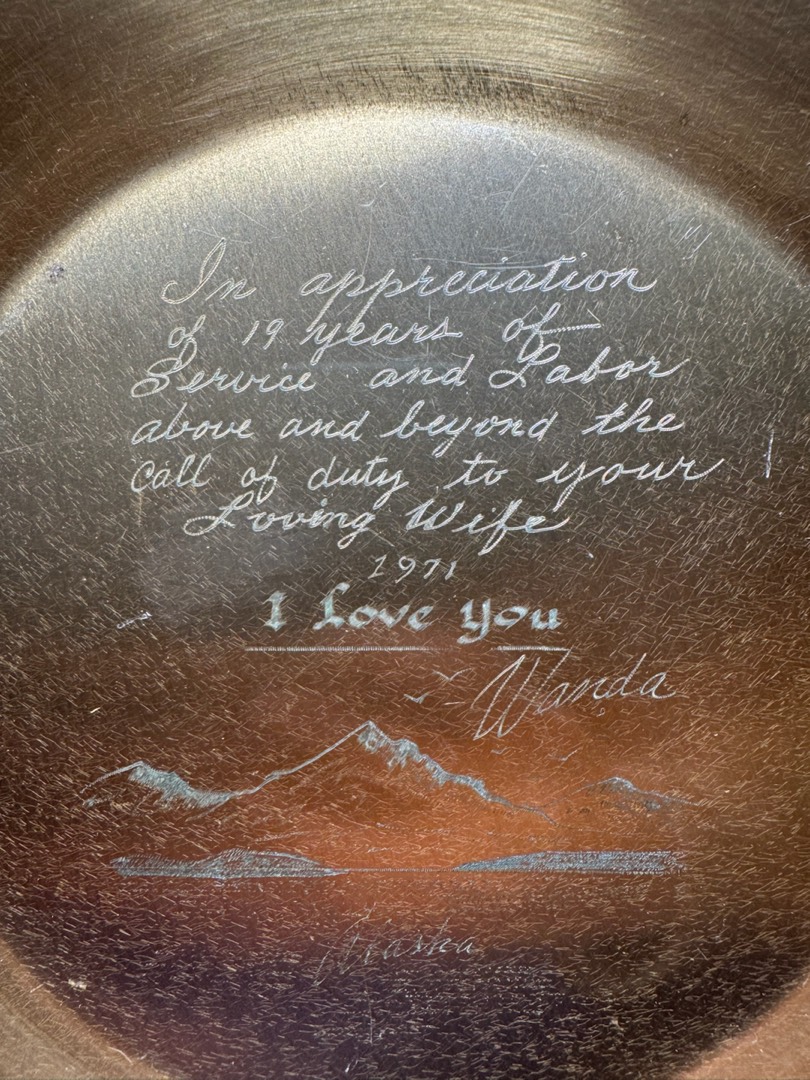 In appreciation
of 19 years of
Service and Labor
above and beyond the
Call of duty to your
Loving Wife
1971
I Love You
Wanda
Alaska